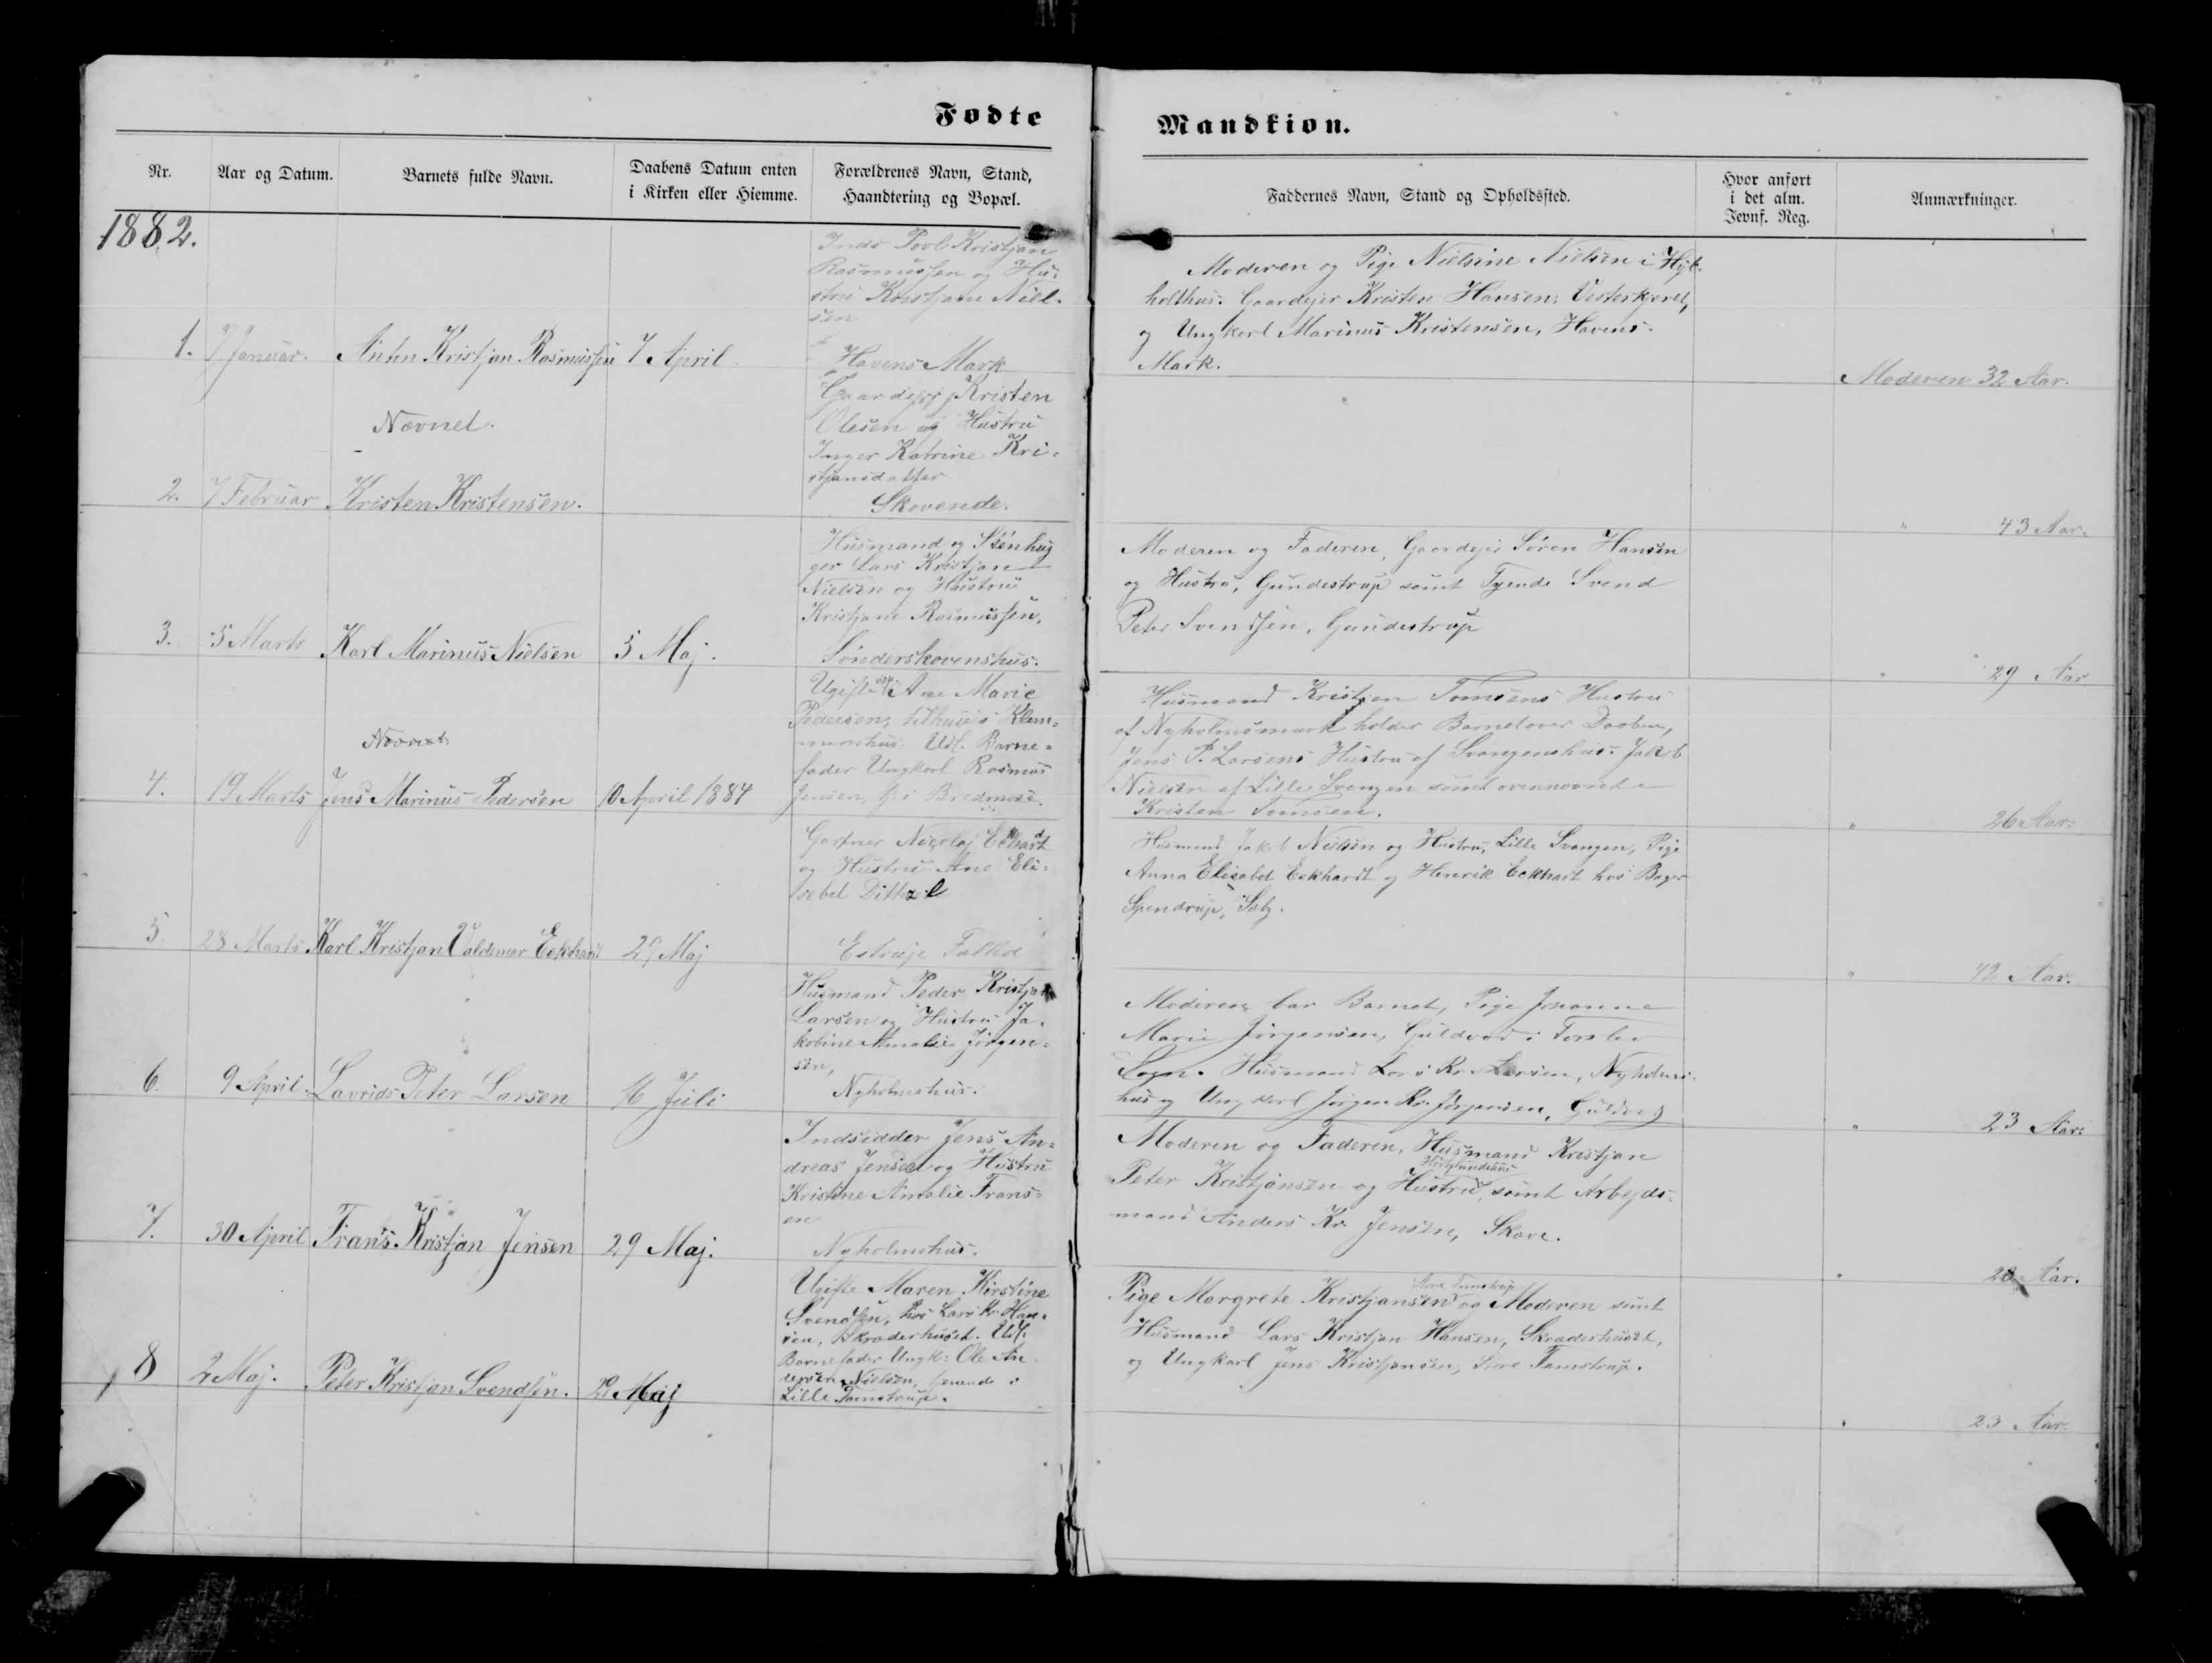 Fødte
Mandkiøn.
Nr.
Aar og Datum.
Barnets fulde Navn.
Daabens Datum enten
i Kirken eller Hiemme.
Forældrenes Navn, Stand,
Haandtering og Bopæl.
Faddernes Navn, Stand og Opholdssted.
Hvor anført
i det alm.
Jevnf. Reg.
Anmærkninger.
1882.
Inds Povl Kristjan
Rasmussen og Hu-
stru Kristjane Niel-
sen
Havens Mark
1.
7 Januar.
Anton Kristjan Rasmussen
7 April
Moderen og Pige Nielsine Nielsen i
holthus. Gaardejer Kristen Hansen, Vesterkjæret,
og Ungkarl Marinus Kristensen, Havens
Mark.
Moderen 32 Aar.
Gaardejer Kristen
Olesen og Hustru
Inger Katrine Kri-
stjansdatter
Skovende.
Nævnet.
2.
7 Februar
Kristen Kristensen.
" 43 Aar.
Husmand og Stenhug
ger Lars Kristjan
Nielsen og Hustru
Kristjane Rasmussen,
Sønderskovenshus.
3.
5 Marts
Karl Marinus Nielsen
5 Maj.
Moderen og Faderen, Gaardejer Søren Hansen
og Hustru, Gundestrup samt Tyende Svend
Peter Svendsen, Gundestrup
" 29 Aar
Ugifte Ane Marie
Pedersen, tilhuse i Klem-
Udl. Barne-
fader Ungkarl Rasmus
Jensen, Bredmose.
Nævnet
4.
19 Marts
Jens Marinus Pedersen
10 April 1884
Husmand Kristjan Tomsens Hustru
af Nyholmsmark holder Barnet over Daaben,
Jens P. Larsens Hustru af Svangenshus. Jakob
Nielsen af Lille Svangen samt ovennævnte
Kristen Tomsen.
" 26 Aar.
Gartner Nicolaj Eckhardt
og Hustru Ane Eli-
sebet Dittzel
Estruje
5
28 Marts
Karl Kristjan Valdemar Eckhardt
29 Maj
Husmand Jakob Nielsen og Hustru, Lille Svangen, Pige
Anna Elisabet Eckhardt og Henrik Eckhart hos Bager
Spendrup,
" 42 Aar.
Husmand Peder Kristjan
Larsen og Hustru Ja-
kobine Amalie Jørgen-
sen,
Nyholmshus.
6.
9 April.
Lavrids Peter Larsen
16 Juli
Moderen bar Barnet, Pige Johanne
Marie Jørgensen, Guldvad i
Sogn. Husmand Lars Kr. Larsen, Nyholms-
hus og Ungkarl Jørgen Kr. Jørgensen, Guldvad
" 23 Aar.
Indsidder Jens An-
dreas Jensen og Hustru
Kristine Amalie Frans-
en
Nyholmshus.
7.
30 April
Frans Kristjan Jensen
29 Maj.
Moderen og Faderen, Husmand Kristjan
Peter Kristjansen og Hustru, samt Arbejds-
mand Anders Kr. Jensen, Skove.
" 28 Aar.
Ugifte Maren Kirstine
Svendsen, hos Lars Kr. Han-
sen, Skræderhuset. Udl.
Barnefader Ungk: Ole An-
dersen Nielsen, tjenende i
Lille Tamstrup.
8
2 Maj.
Peter Kristjan Svendsen.
29 Maj
Store Tamstrup
Pige Margrete Kristjansen og Moderen samt
Husmand Lars Kristjan Hansen, Skræderhuset,
og Ungkarl Jens Kristjansen, Store Tamstrup.
" 23 Aar.